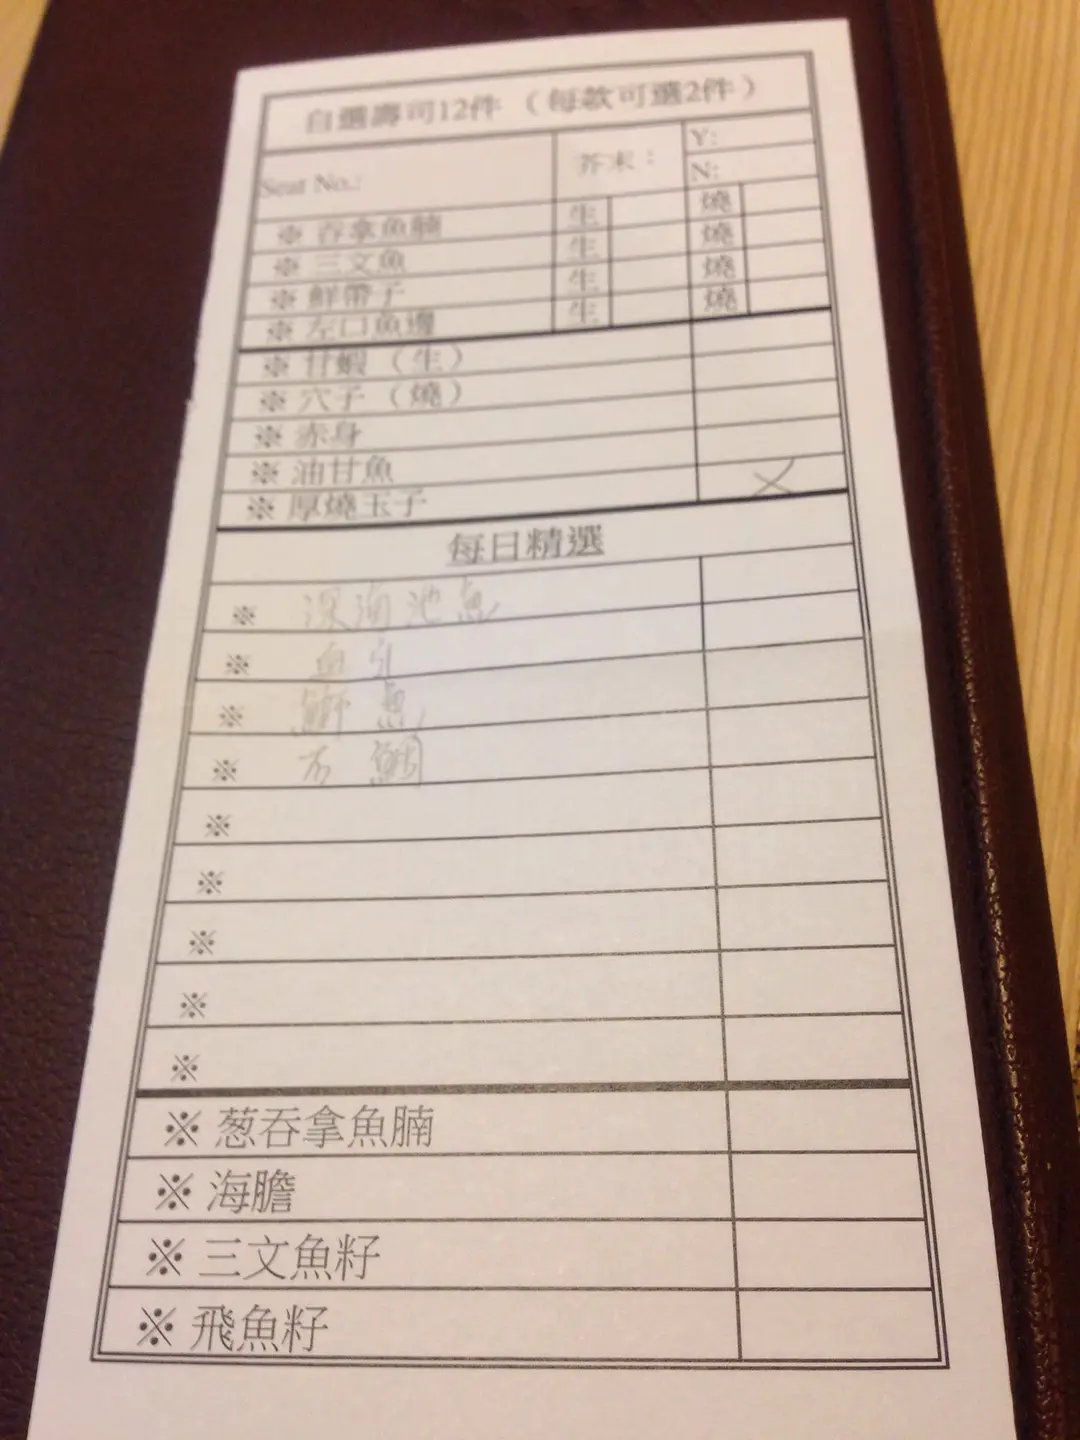 自選壽司12件（每款可選2件）
Seat No.: 芥末： Y:
N:
※ 吞拿魚腩 生 燒
※ 三文魚 生 燒
※ 鮮帶子 生 燒
※ 左口魚邊 生 燒
※ 甘蝦（生）
※ 穴子（燒）
※ 赤身
※ 油甘魚
※ 厚燒玉子
每日精選
※ 深海池魚
※
※ 鰤魚
※ 石鯛
※
※
※
※
※
※ 葱吞拿魚腩
※ 海膽
※ 三文魚籽
※ 飛魚籽